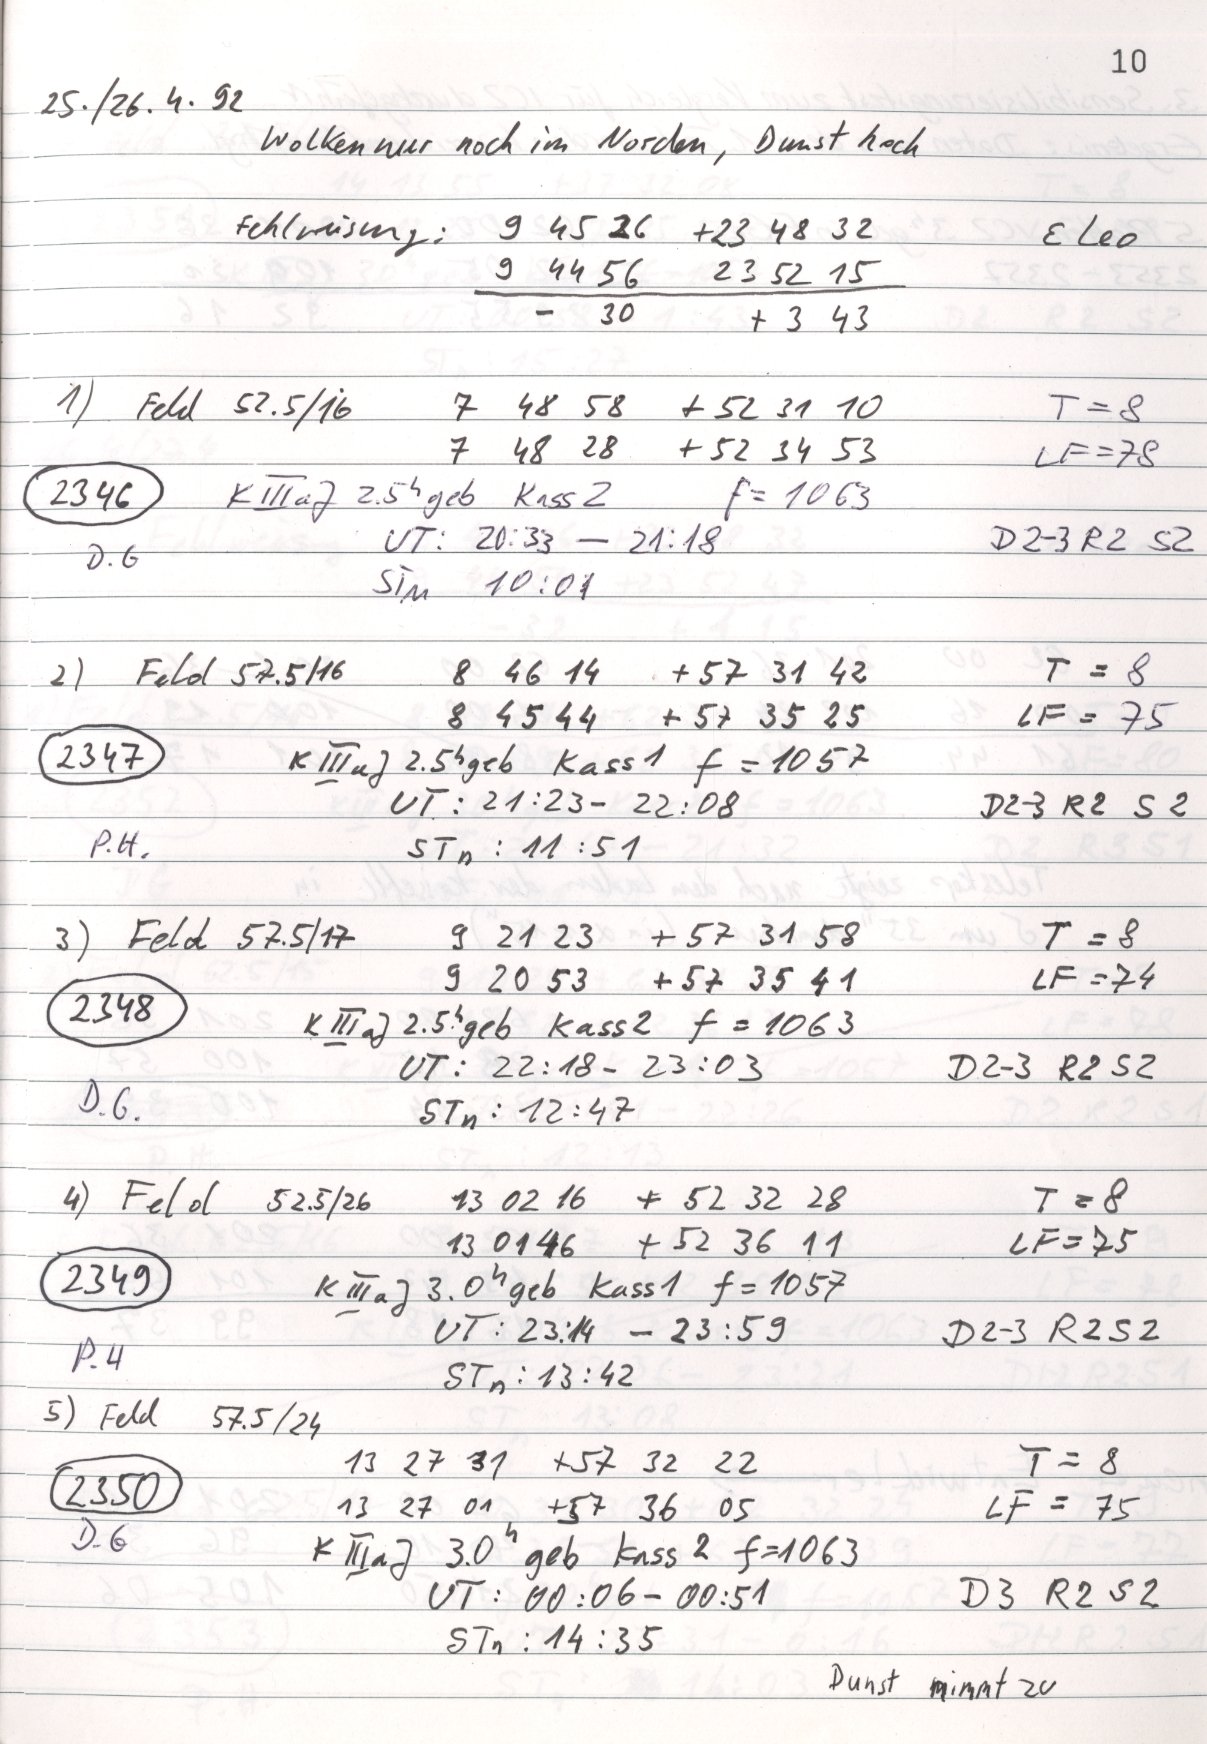 10
25./26. 4. 92
Wolken nur noch im Norden, Dunst hoch
Fehlweisung: 9 45 26 +23 48 32 ε Leo
9 44 56 23 52 15
- 30 + 3 43
1) Feld 52.5/16 7 48 58 +52 31 10 T = 8
7 48 28 +52 34 53 LF = 78
2346 K IIIaJ 2.5h geb Kass 2 f = 1063
UT: 20:33 — 21:18 D2-3 R2 S2
D.G
STn 10:01
2) Feld 57.5/16 8 46 14 +57 31 42 T = 8
8 45 44 +57 35 25 LF = 75
2347 K IIIaJ 2.5h geb Kass 1 f = 1057
UT: 21:23 - 22:08 D2-3 R2 S2
P.H. STn: 11:51
3) Feld 57.5/17 9 21 23 +57 31 58 T = 8
9 20 53 +57 35 41 LF = 74
2348 K IIIaJ 2.5h geb Kass 2 f = 1063
UT: 22:18 - 23:03 D2-3 R2 S2
D.G. STn: 12:47
4) Feld 52.5/26 13 02 16 + 52 32 28 T = 8
13 01 46 + 52 36 11 LF = 75
2349 K IIIaJ 3.0h geb Kass 1 f = 1057
UT: 23:14 - 23:59 D2-3 R2 S2
P.H STn: 13:42
5) Feld 57.5/24
13 27 31 +57 32 22 T = 8
2350 13 27 01 +57 36 05 LF = 75
D.G K IIIaJ 3.0h geb Kass 2 f=1063
UT: 00:06 - 00:51 D3 R2 S2
STn: 14:35
Dunst nimmt zu